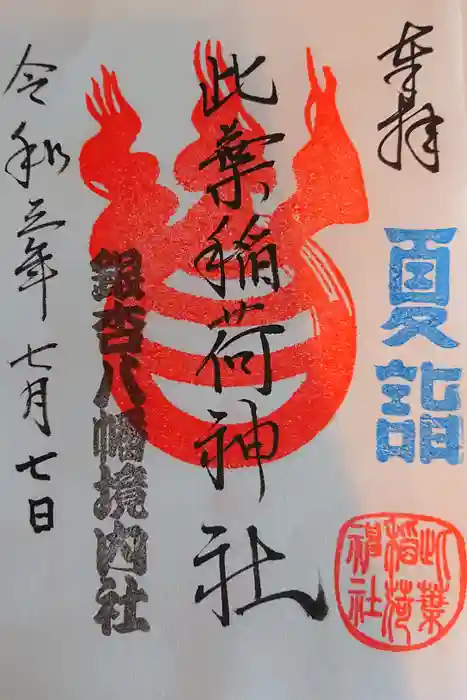 奉拝
夏詣
此葉
稲荷
神社
此葉稲荷神社
銀杏八幡境内社
令和三年七月七日